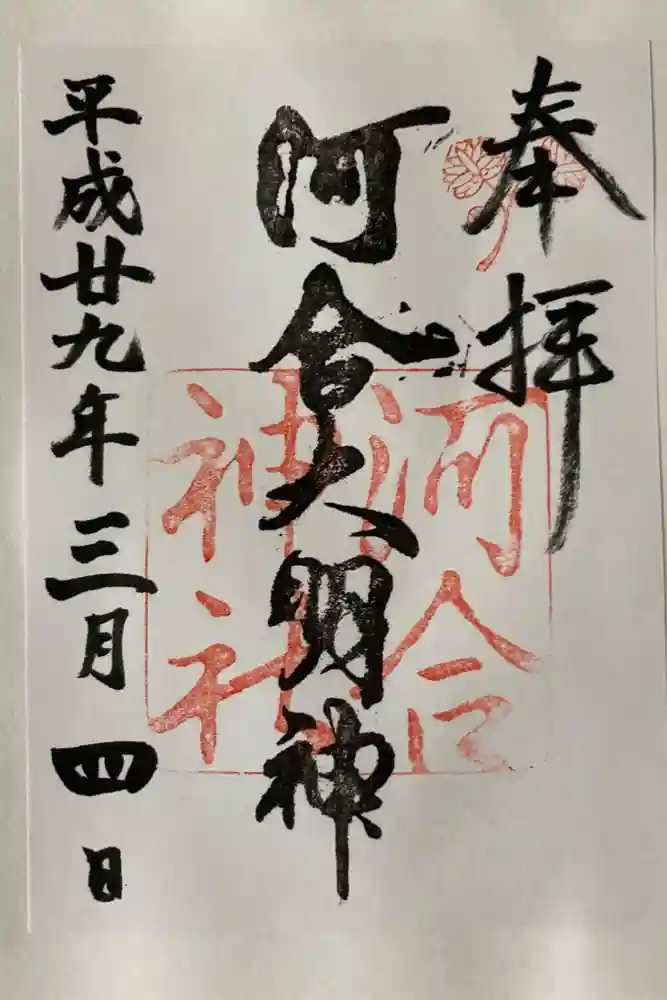 奉拝
阿合大明神
河合
神社
平成廿九年三月四日